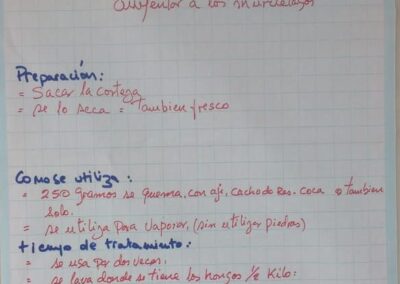 Auyentor a los murcielagos
Preparación:
= Sacar la corteza
= se lo seca = tambien fresco
Como se utiliza:
= 250 gramos se quema, con aji, cacho de Res. coca o tambien
solo.
= se utiliza para vaporar, (sin utilizar piedras)
tiempo de tratamiento:
= se usa por dos veces.
= se lava donde se tiene los hongos 1/2 Kilo: